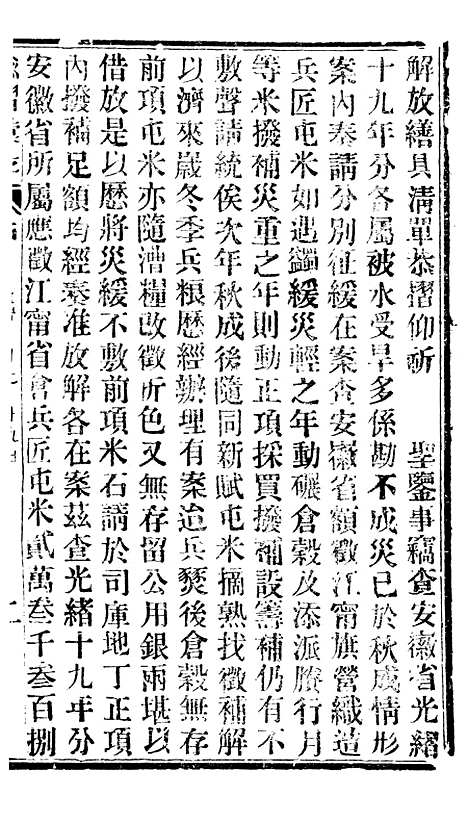 解放繕具清單恭摺仰祈 聖鑒事竊查安徽省光緒
十九年分各屬被水受旱多係勘不成災已於秋成情形
案內奏請分別征緩在案查安徽省額徵江甯旗營織造
兵匠屯米如遇蠲緩災輕之年動碾倉穀及添派賸行月
等米撥補災重之年則動正項採買撥補設籌補仍有不
敷聲請統俟次年秋成後隨同新賦屯米摘熟找徵補解
以濟來歲冬季兵粮歷經辦理有案迨兵燹後倉穀無存
前項屯米亦隨漕糧改徵折色又無存留公用銀兩堪以
借放是以歷將災緩不敷前項米石請於司庫地丁正項
內撥補足額均經奏准放解各在案茲查光緒十九年分
安徽省所屬應徵江甯省倉兵匠屯米貳萬叁千叁百捌